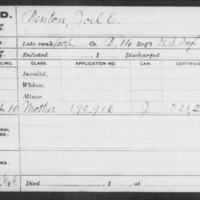 D. Denton, Joel E.
Late rank, Corp Co. B, 14 Reg't U.S. Inf
Enlisted , 1 Discharged
CLASS. APPLICATION NO. LAW.
Invalid.
Widow.
Minor.
Mother 190.916 J
Died , 1 , at